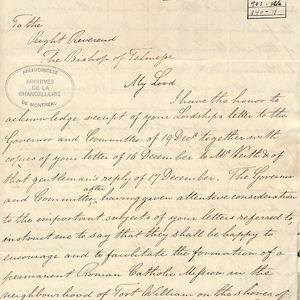 901-086
840-1
To the
Right Reverend
The Bishop of Telmesse
ARCHIDIOCESE
ARCHIVES
DE LA
CHANCELLERIE
DE MONTREAL
My Lord
I have the honor to
acknowledge receipt of your Lordships letter to the
Governor and Committee of 19 Decr together with
copies of your letter of 16 December to Mr Keith & of
that gentleman's reply of 17 December. The Governor
and Committee, after having given attentive consideration
to the important subjects of your letters referred to,
instruct me to say that they shall be happy to
encourage and to facilitate the formation of a
permanent Roman Catholic Mission in the
neighbourhood of Fort William on the shores of